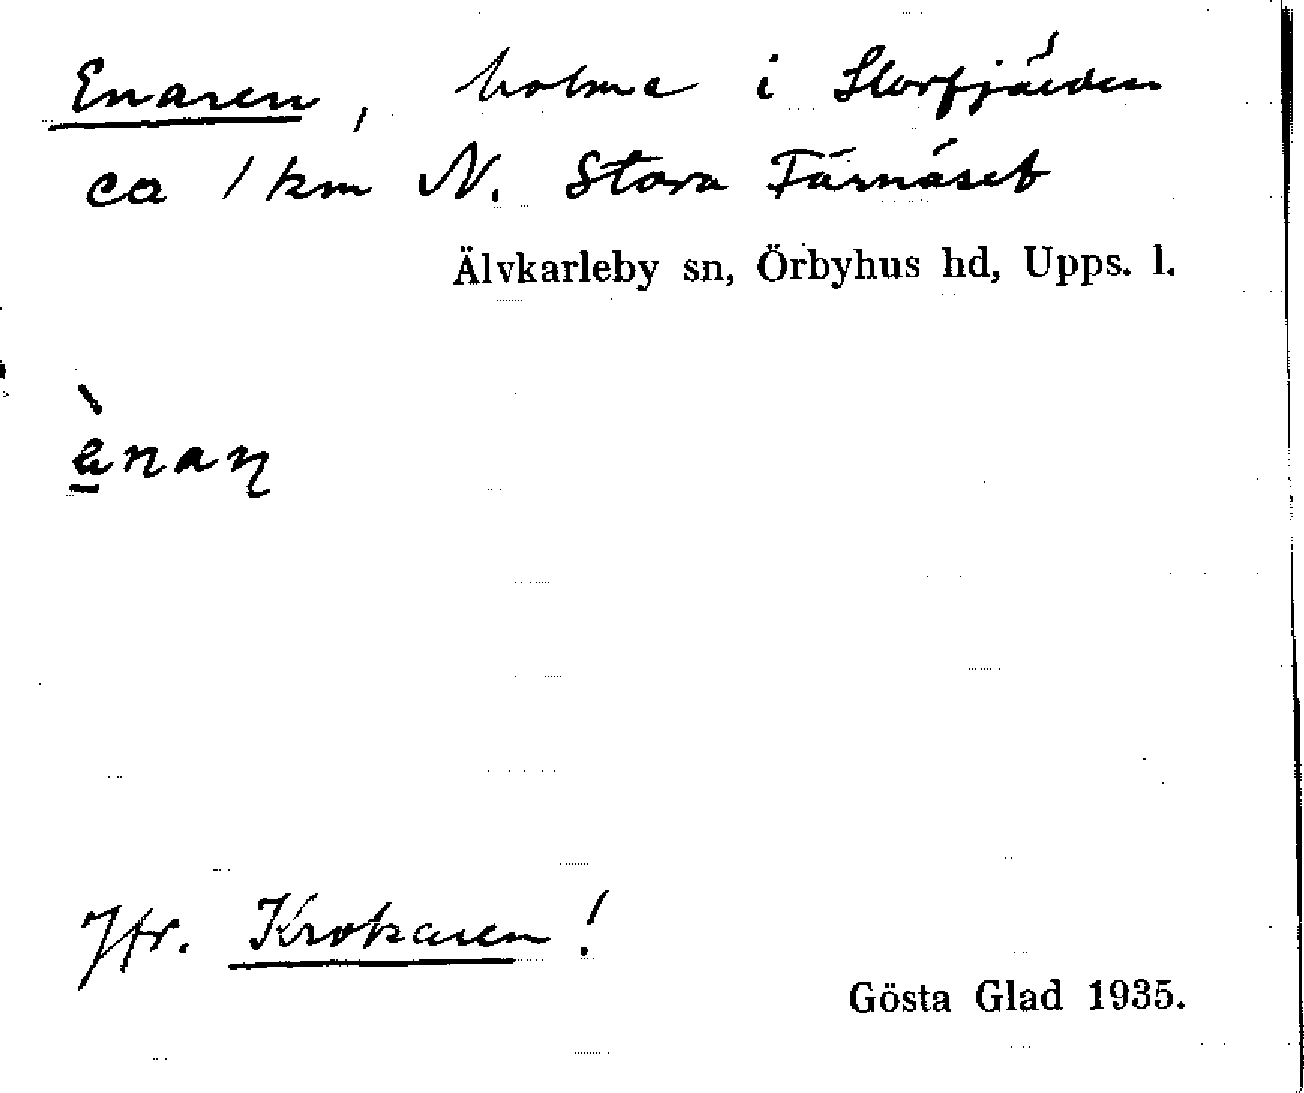 Enaren, holme i Storfjärden
ca 1 km N. Stora Tärnäset
Älvkarleby sn, Örbyhus hd, Upps. l.
è̱naɳ
Jfr. Krokaren!
Gösta Glad 1935.